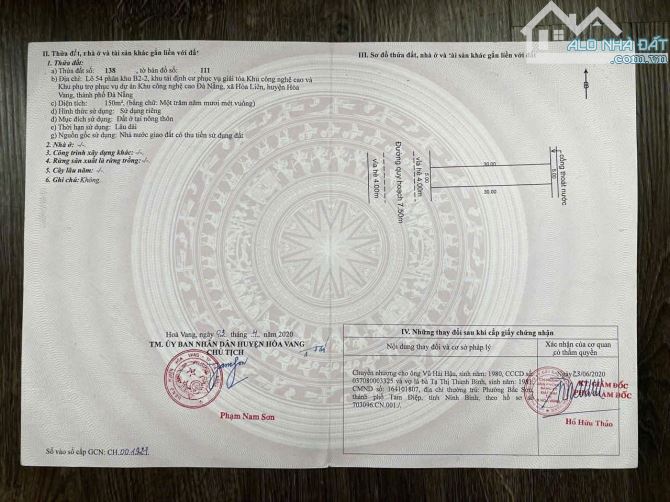 ALO NHÀ ĐẤT
II. Thửa đất, nhà ở và tài sản khác gắn liền với đất
1. Thửa đất:
a) Thửa đất số: 138, tờ bản đồ số: 111
b) Địa chỉ: Lô 54 phân khu B2-2, khu tái định cư phục vụ giải tỏa Khu công nghệ cao và
Khu phụ trợ phục vụ dự án Khu công nghệ cao Đà Nẵng, xã Hòa Liên, huyện Hòa
Vang, thành phố Đà Nẵng
c) Diện tích: 150m², (bằng chữ: Một trăm năm mươi mét vuông)
d) Hình thức sử dụng: Sử dụng riêng
đ) Mục đích sử dụng: Đất ở tại nông thôn
e) Thời hạn sử dụng: Lâu dài
g) Nguồn gốc sử dụng: Nhà nước giao đất có thu tiền sử dụng đất
2. Nhà ở: -/-
3. Công trình xây dựng khác: -/-
4. Rừng sản xuất là rừng trồng: -/-
5. Cây lâu năm: -/-
6. Ghi chú: Không.
Hoà Vang, ngày tháng năm 2020
TM. ỦY BAN NHÂN DÂN HUYỆN HÒA VANG
CHỦ TỊCH
Phạm Nam Sơn
Số vào sổ cấp GCN: CH.001921
III. Sơ đồ thửa đất, nhà ở và tài sản khác gắn liền với đất
B
vỉa hè 4.00m
Đường quy hoạch 7.50m
vỉa hè 4.00m
5.00
30.00
30.00
5.00
cống thoát nước
IV. Những thay đổi sau khi cấp giấy chứng nhận
Nội dung thay đổi và cơ sở pháp lý
Xác nhận của cơ quan
có thẩm quyền
Chuyển nhượng cho ông Vũ Hải Hậu, sinh năm: 1980, CCCD số:
037080003325 và vợ là bà Tạ Thị Thanh Bình, sinh năm: 1981,
CMND số: 164101807, địa chỉ thường trú: Phường Bắc Sơn,
thành phố Tam Điệp, tỉnh Ninh Bình; theo hồ sơ số
703096.CN.001./.
Ngày 23/06/2020
GIÁM ĐỐC
Hồ Hữu Thảo